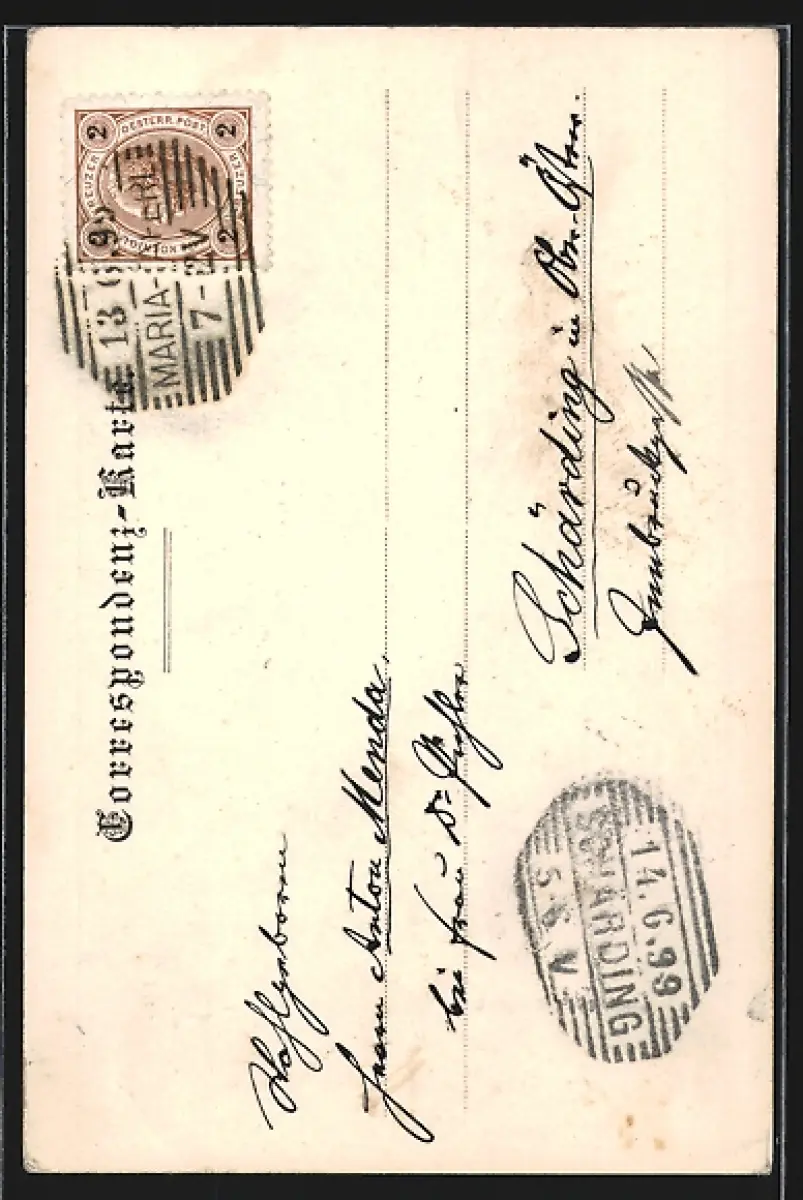 Correspondenz-Karte.
2 OESTERR. POST. 2
KREUZER
2
13 6 99
MARIA-
7-  V
Hochgeboren
Herrn Anton Menda
bei Frau Dr
Schärding in Ob. Öster.
Innbruckgasse
14.6.99
SCHÄRDING
5-6 V